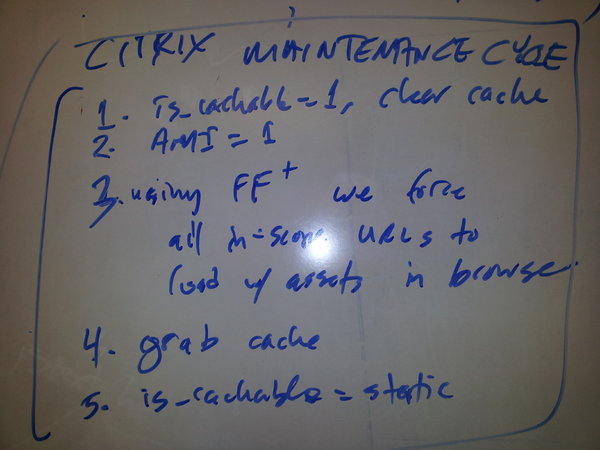 CITRIX MAINTENANCE CYCLE
1. is_cachable=1, clear cache
2. AMI = 1
3. using FF+ we force
all in-scope URLs to
load w/ assets in browser
4. grab cache
5. is_cachable = static